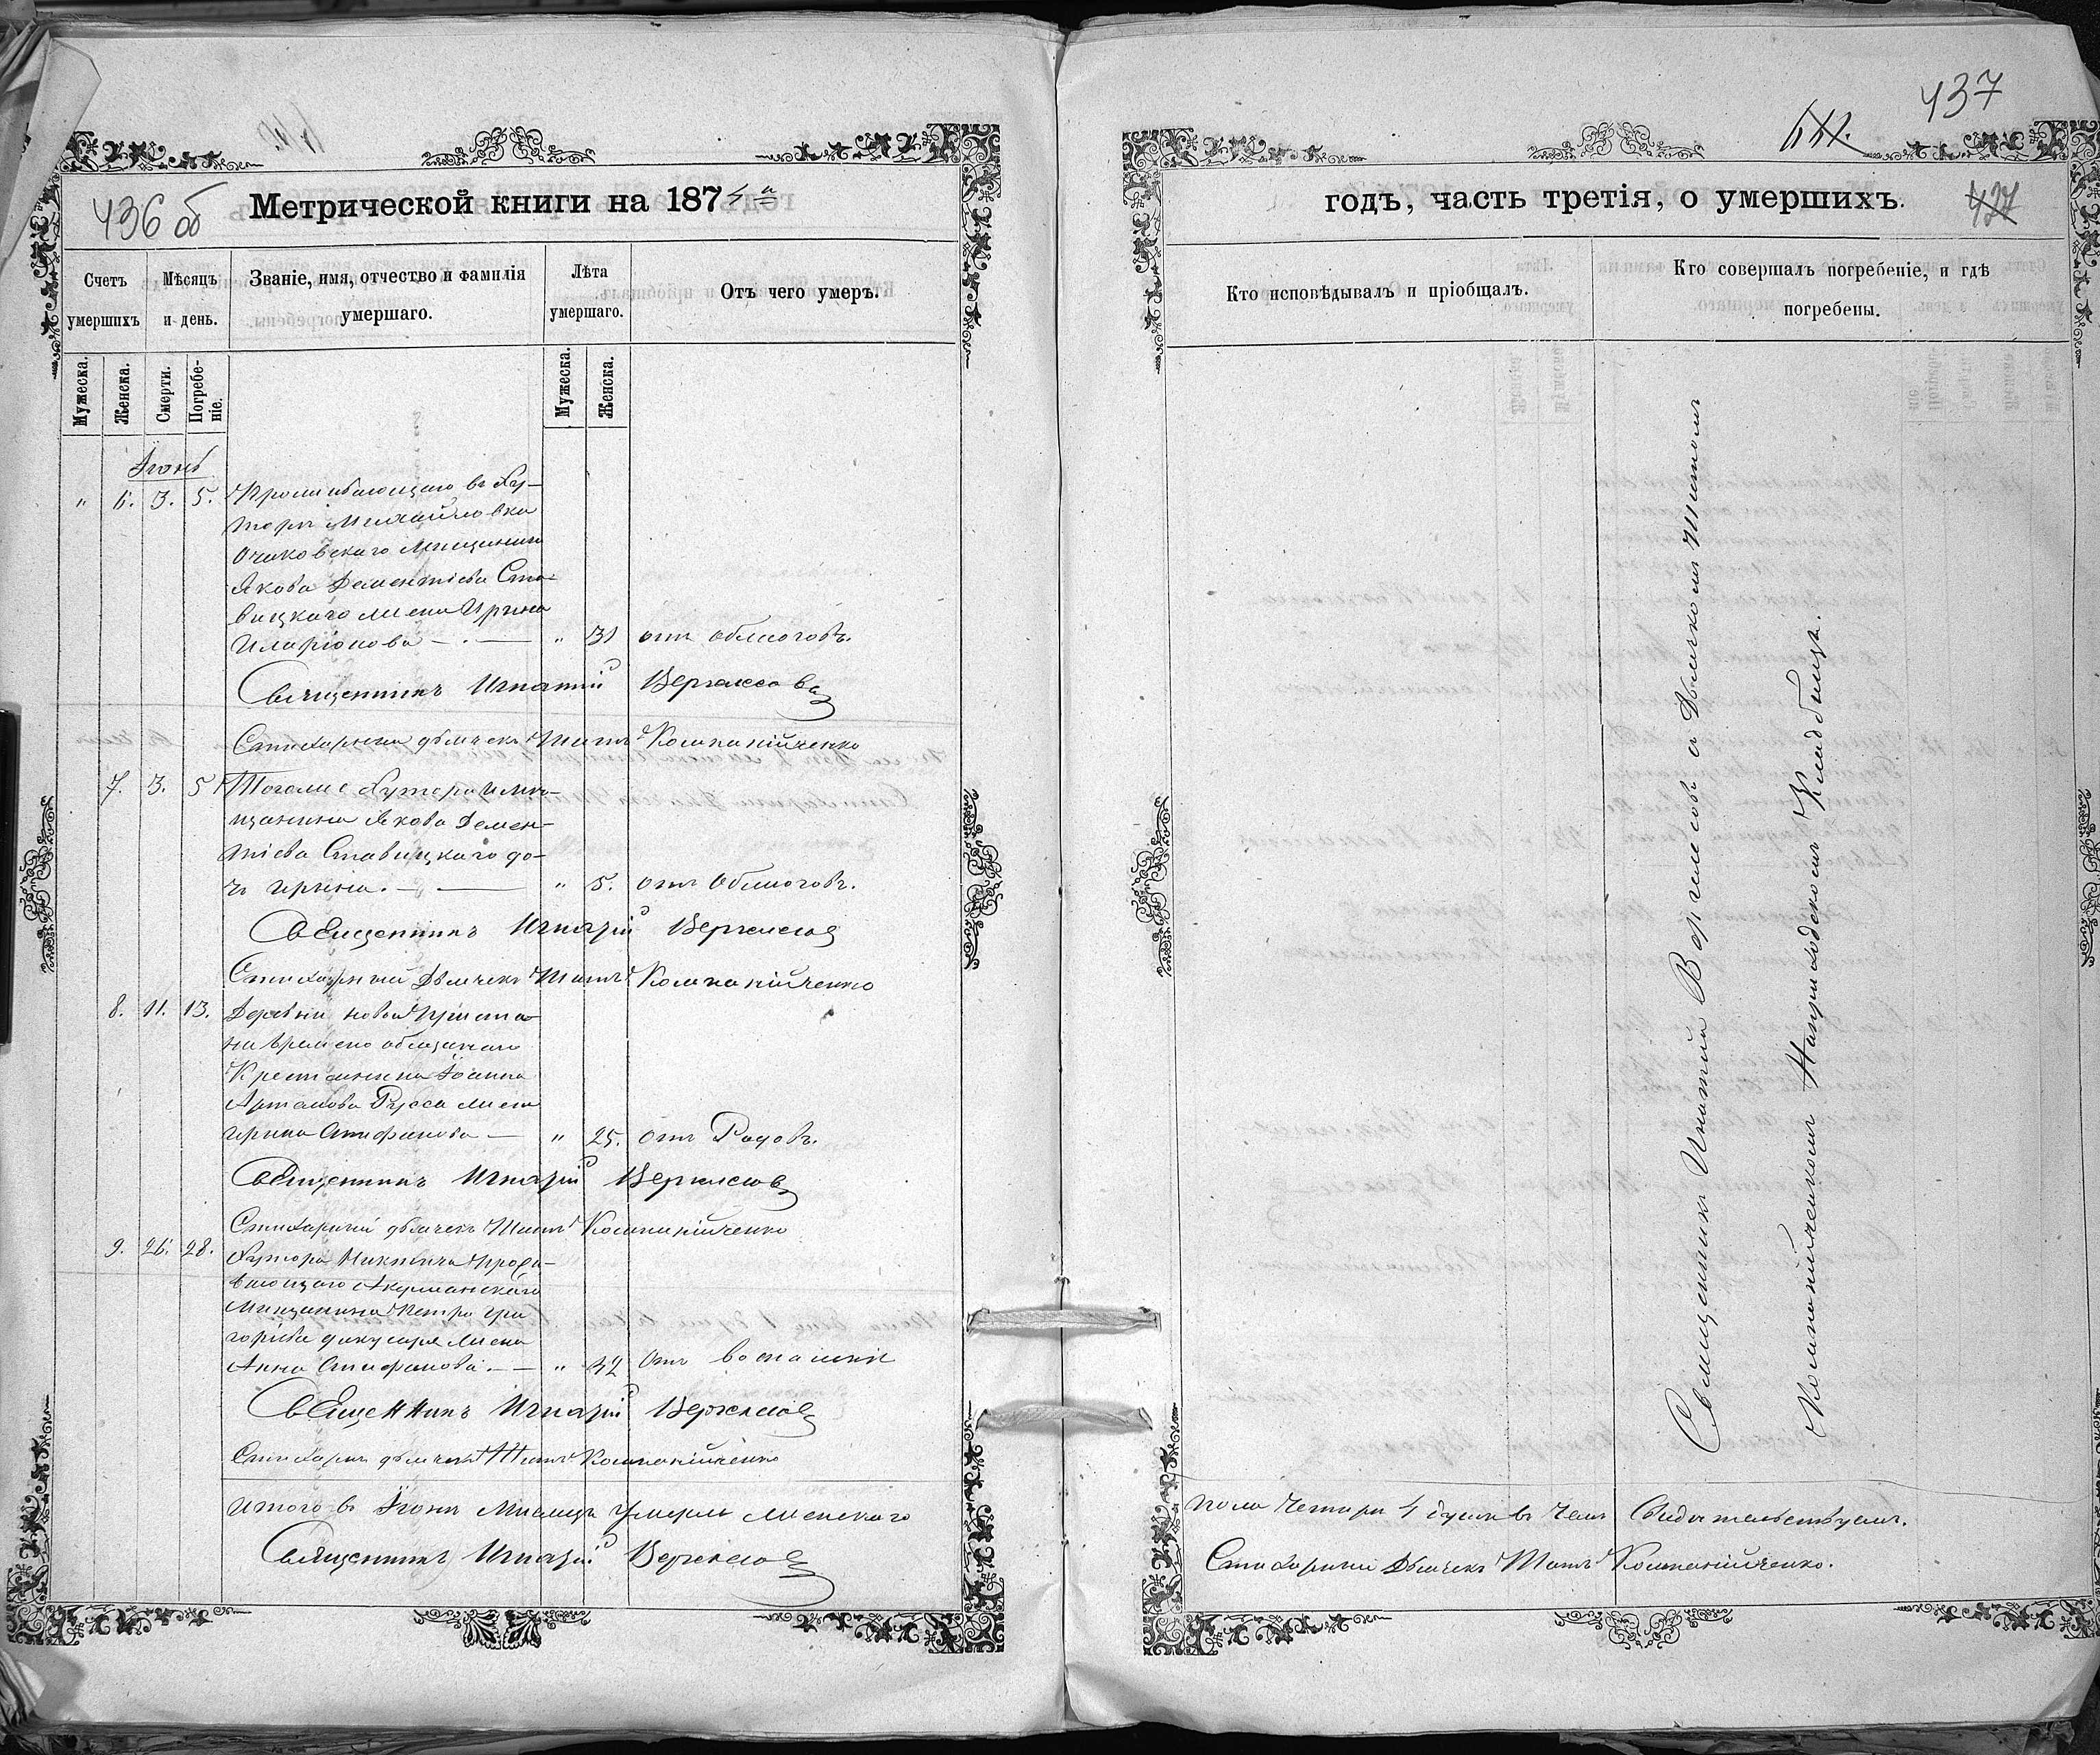 436 об
Метрической книги на 1874 й
Счетъ умершихъ
Мѣсяцъ и день.
Званіе, имя, отчество и фамилія умершаго.
Лѣта умершаго.
Отъ чего умеръ.
Мужеска.
Женска.
Смерти.
Погребе-
ніе.
Мужеска.
Женска.
Іюнь
" 6. 3. 5. Проживающаго въ Ху-
торѣ Михайловка
Очаковскаго мѣщанина
Якова Дементіева Ста-
вицкаго жена Ирина
Иларіонова — " 31 отъ обжоговъ.
Священникъ Игнатій Вержесовъ
Стихарный дьячекъ Титъ Компанійченко
7. 3. 5 Тогоже Хутора мѣ-
щанина Якова Демен-
тіева Ставицкаго до-
чь Ирина. — " 5. отъ обжоговъ.
Священникъ Игнатій Вержесовъ
Стихарный Дьячекъ Титъ Компанійченко
8. 11. 13. Деревни новой
временно обязанаго
Крестьянина Іоанна
Артамова Русса жена
Ирина Стефанова — " 25. отъ Родовъ.
Священникъ Игнатій Вержесовъ
Стихарный дьячекъ Титъ Компанійченко
9. 26. 28. Хутора Никитича прожи-
вающаго Акерманскаго
Мищанина Петра Гри
горіева жена
Анна Стефанова. — " 42 отъ
Священникъ Игнатій Вержесовъ
Стихарн. дьячекъ Титъ Компанійченко
Итого въ Іюнѣ Мисяцѣ умерли женскаго
Священникъ Игнатій Вержесовъ
437
годъ, часть третія, о умершихъ.
437
Кто исповѣдывалъ и пріобщалъ.
Кто совершалъ погребеніе, и гдѣ погребены.
Священникъ Игнатій Вержесовъ съ Дьячкомъ Титомъ
Компанійченкомъ На приходскомъ Кладбищѣ.
пола четыри 4 души въ чемъ Свидѣтельствуемъ.
Стихарный Дьячекъ Титъ Компанійченко.